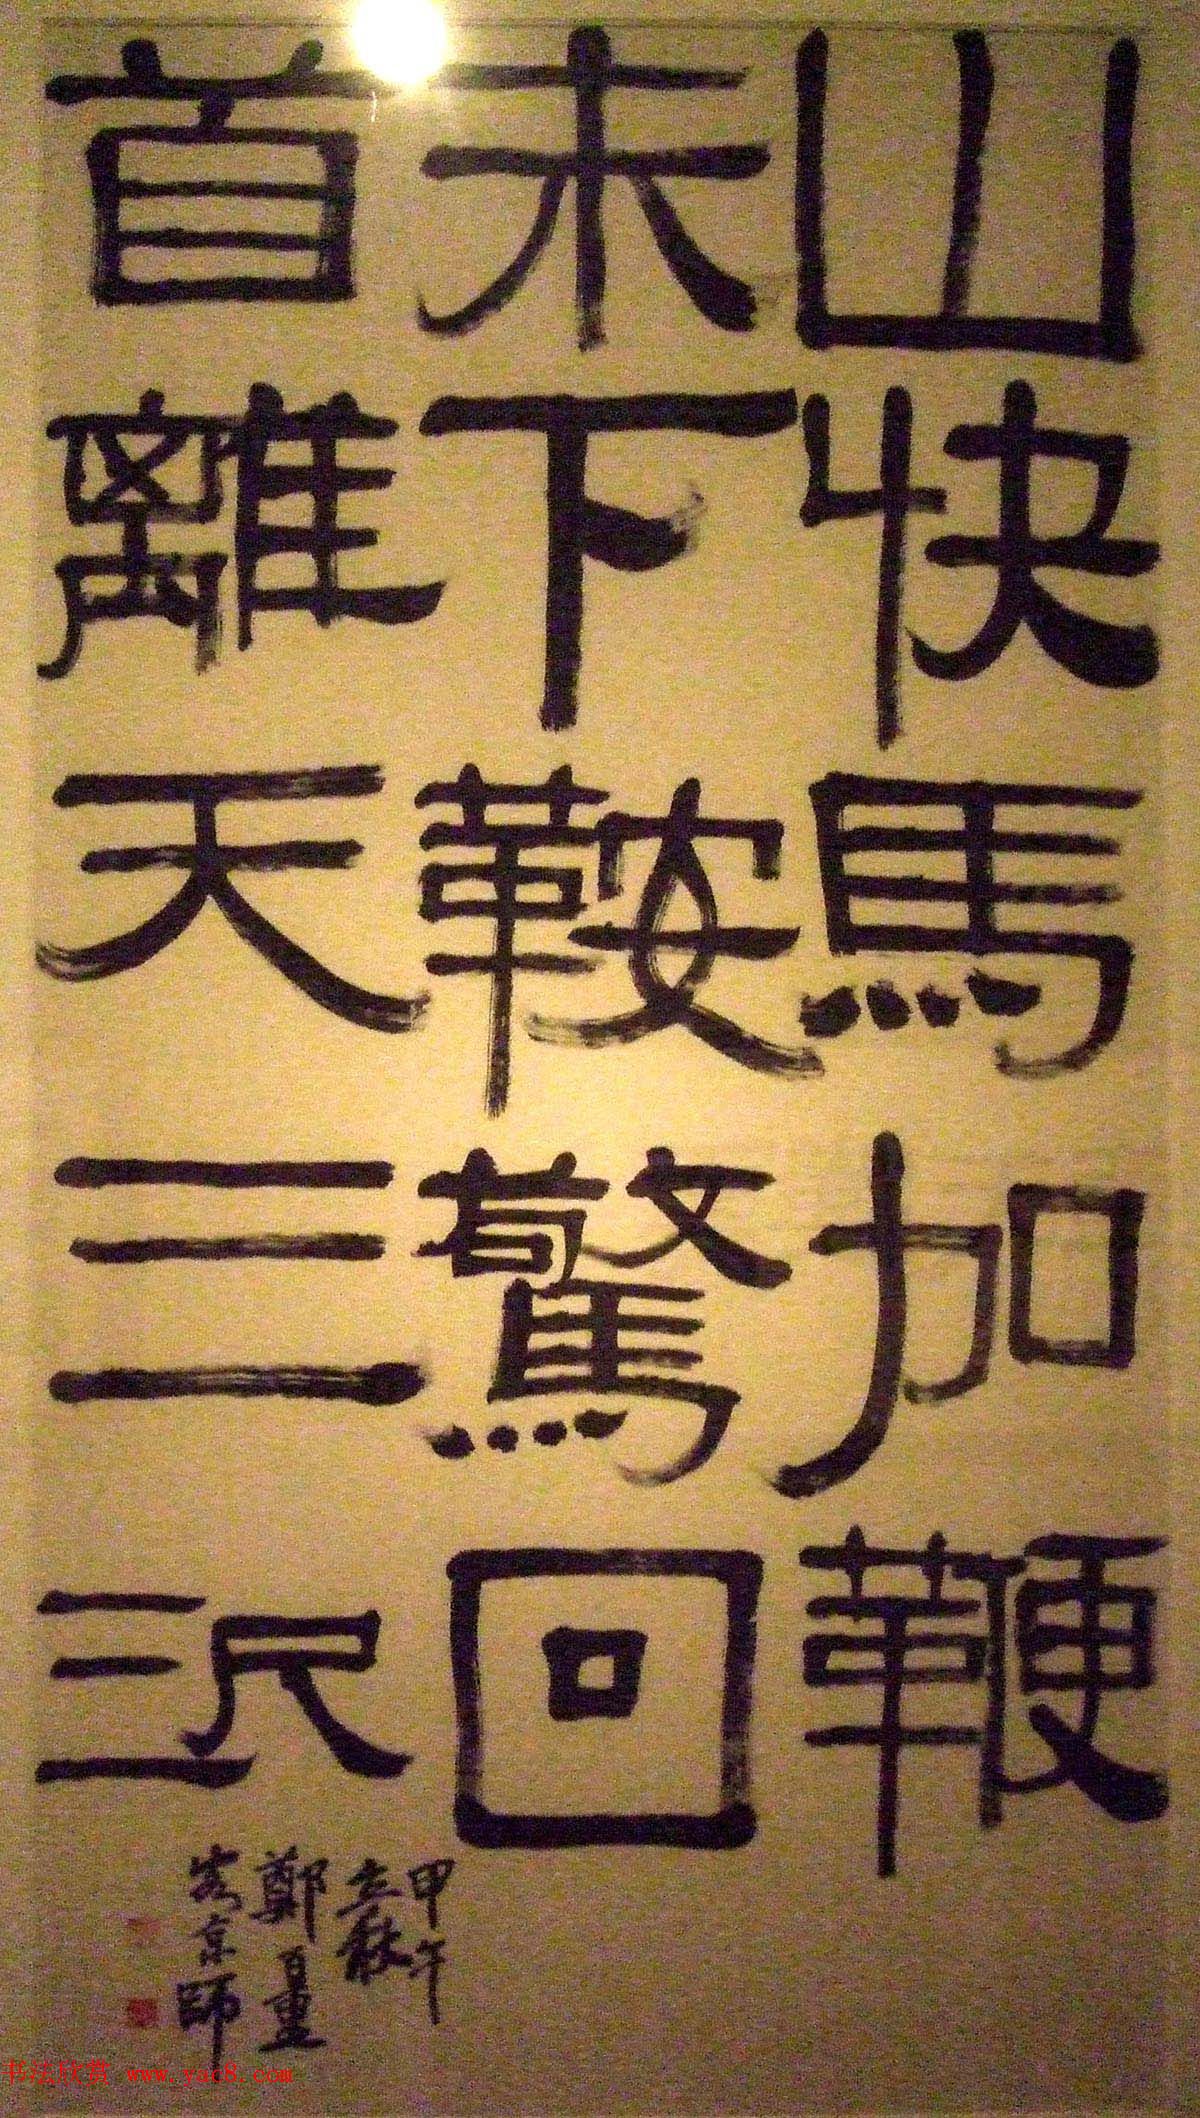 山快馬加鞭
未下鞍驚回
首離天三尺三
甲午
立秋
鄭百重
客京師
书法欣赏 www.yac8.com